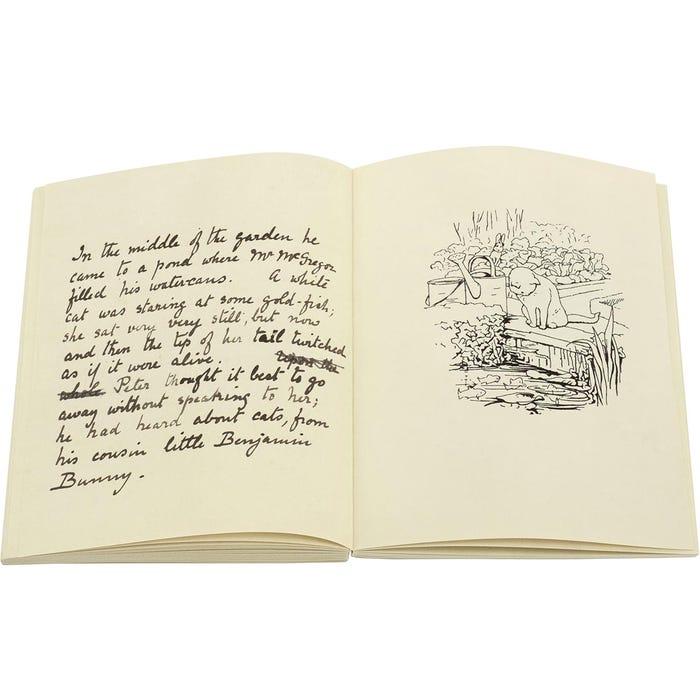 In the middle of the garden he
came to a pond where Mr McGregor
filled his watercans. A white
cat was staring at some gold-fish;
she sat very very still, but now
and then the tip of her tail twitched
as if it were alive. upon the
whole Peter thought it best to go
away without speaking to her;
he had heard about cats, from
his cousin little Benjamin
Bunny.